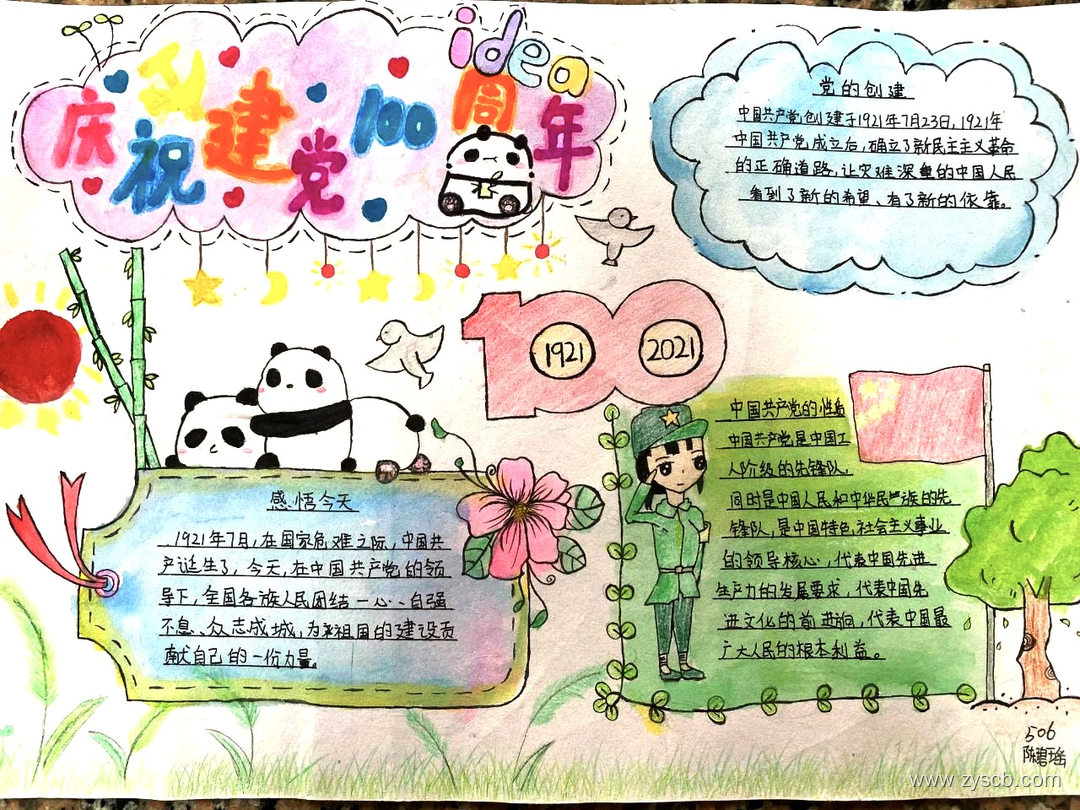 idea
庆祝建党100周年
党的创建
中国共产党创建于1921年7月23日,1921年
中国共产党成立后,确立了新民主主义革命
的正确道路,让灾难深重的中国人民
看到了新的希望、有了新的依靠。
100
1921
2021
中国共产党的性质
中国共产党是中国工
人阶级的先锋队.
同时是中国人民和中华民族的先
锋队,是中国特色社会主义事业
的领导核心,代表中国先进
生产力的发展要求,代表中国先
进文化的前进方向,代表中国最
广大人民的根本利益。
感悟今天
1921年7月,在国家危难之际,中国共
产诞生了,今天,在中国共产党的领
导下,全国各族人民团结一心、自强
不息、众志成城,为祖国的建设贡
献自己的一份力量。
506
陈碧瑶
www.zyscb.com